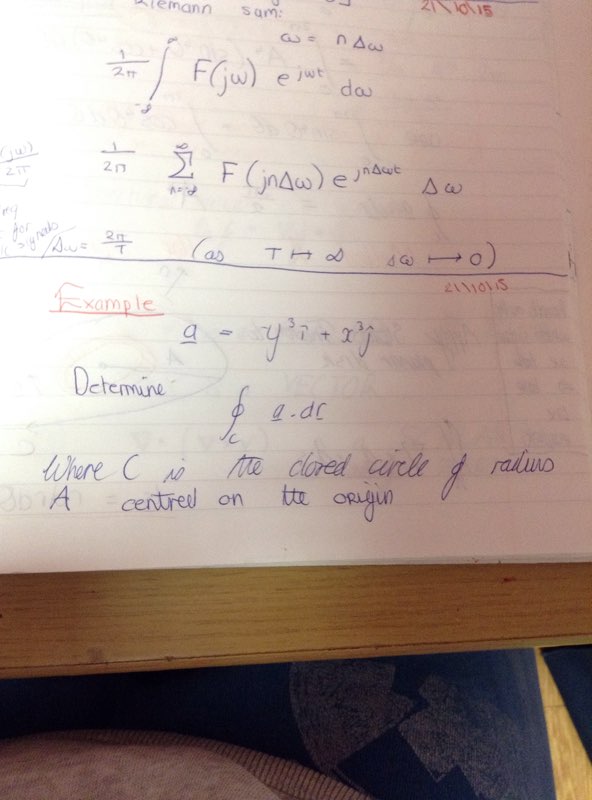 Riemann sum:
21\10\15
ω = nΔω
1/2π ∫_{-∞}^{∞} F(jω) e^{jωt} dω
(jω)/2π
1/2π Σ_{n=-∞}^{∞} F(jnΔω) e^{jnΔωt} Δω
for signals
Δω = 2π/T (as T ↦ ∞ Δω ↦ 0)
21\10\15
Example
a = y³i + x³j
Determine
∮_C a.dr
Where C is the closed circle of radius
A centred on the origin